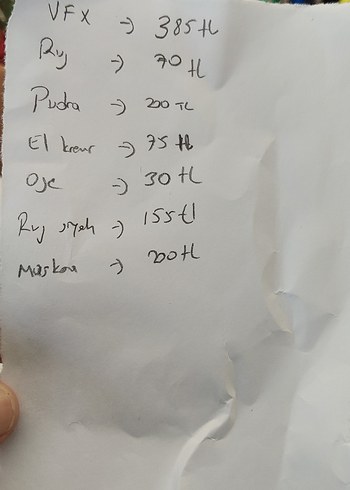 VFX → 385 tl
Ruj → 70 tl
Pudra → 200 TL
El kremi → 75 tl
Oje → 30 tl
Ruj siyah → 155 tl
Maskara → 200 tl